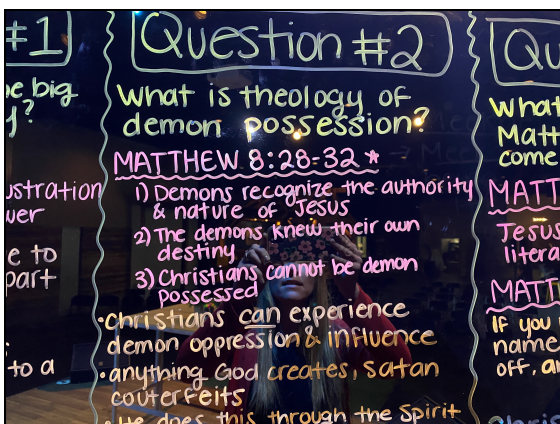 #1
e big
y?
ustration
wer
e to
part
to a
Question #2
What is theology of
demon possession?
MATTHEW 8:28-32 *
1) Demons recognize the authority
& nature of Jesus
2) The demons knew their own
destiny
3) Christians cannot be demon
possessed
• Christians can experience
demon oppression & influence
• anything God creates, satan
couterfeits
• He does this through the Spirit
Qu
What
Matt
come
MATT
Jesus
litera
MATT
If you
name
off, an